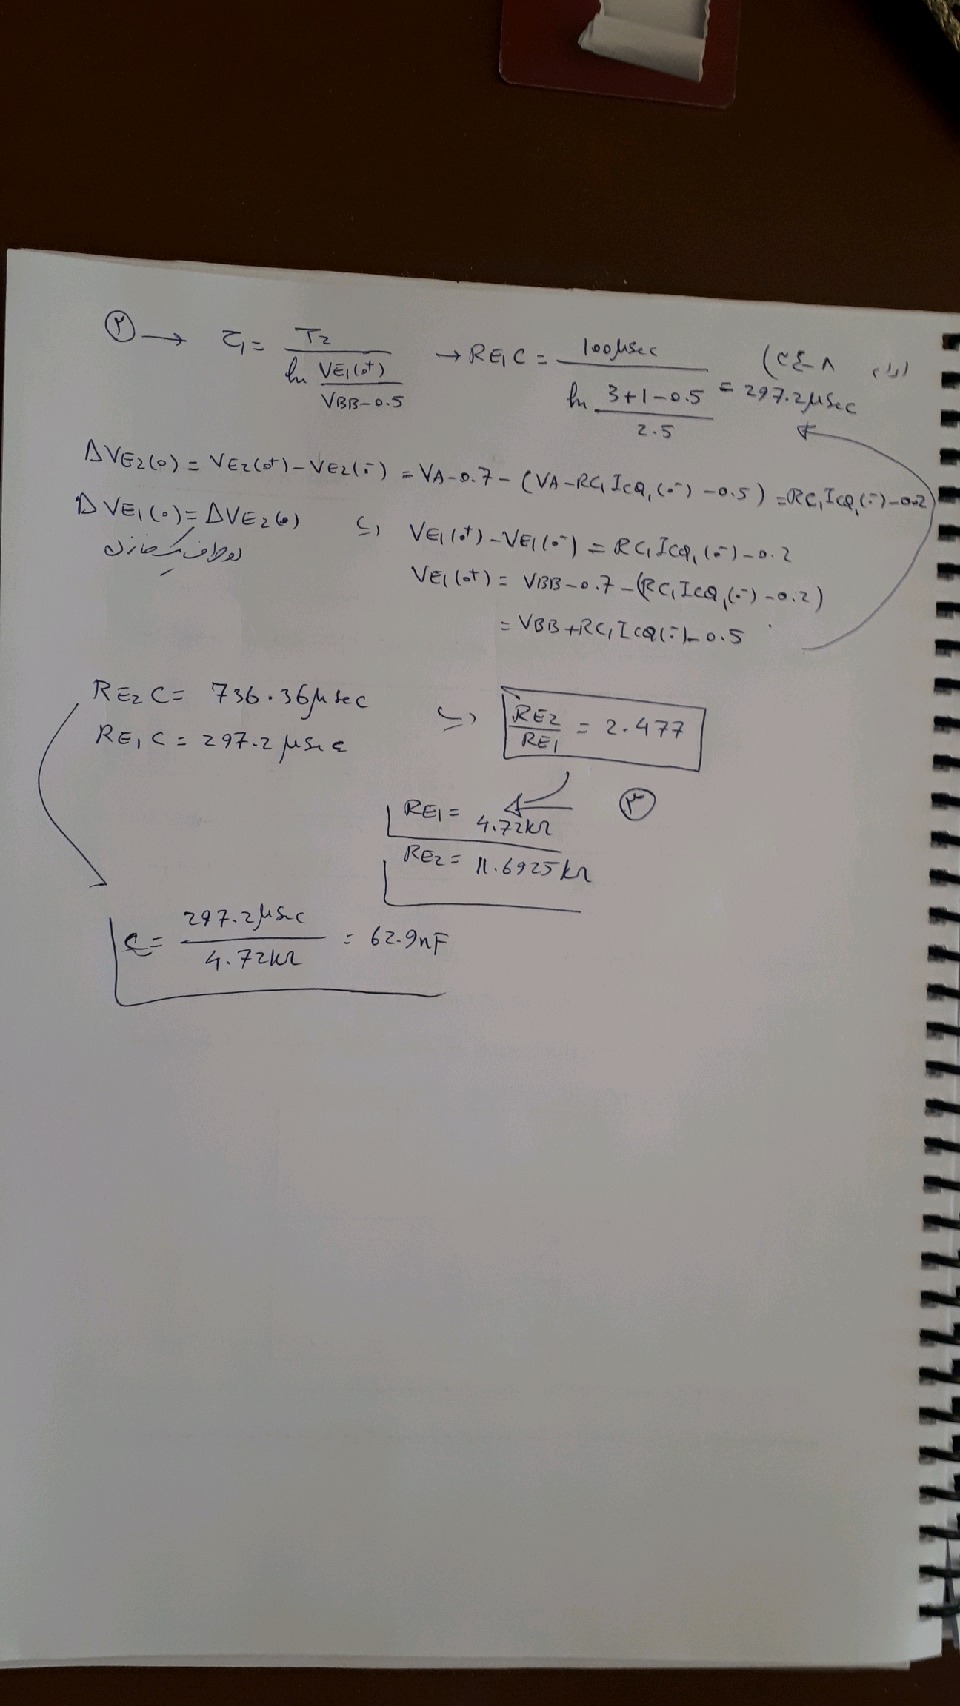 ② → τ1 = T2 / ln (VE1(0+) / (VBB-0.5)) → RE1C = 100μsec / ln ((3+1-0.5) / 2.5) = 297.2μsec
ΔVE2(0) = VE2(0+) - VE2(0-) = VA-0.7 - (VA-RC1 ICQ1(0-) - 0.5) = RC1 ICQ1(0-) - 0.2
ΔVE1(0) = ΔVE2(0) => VE1(0+) - VE1(0-) = RC1 ICQ1(0-) - 0.2
VE1(0+) = VBB-0.7 - (RC1 ICQ1(0-) - 0.2)
= VBB+RC1 ICQ1(0-) - 0.5
RE2 C = 736.36μsec
RE1 C = 297.2 μsec
=> RE2 / RE1 = 2.477
RE1 = 4.72kΩ ③
RE2 = 11.6925kΩ
C = 297.2μsec / 4.72kΩ = 62.9nF